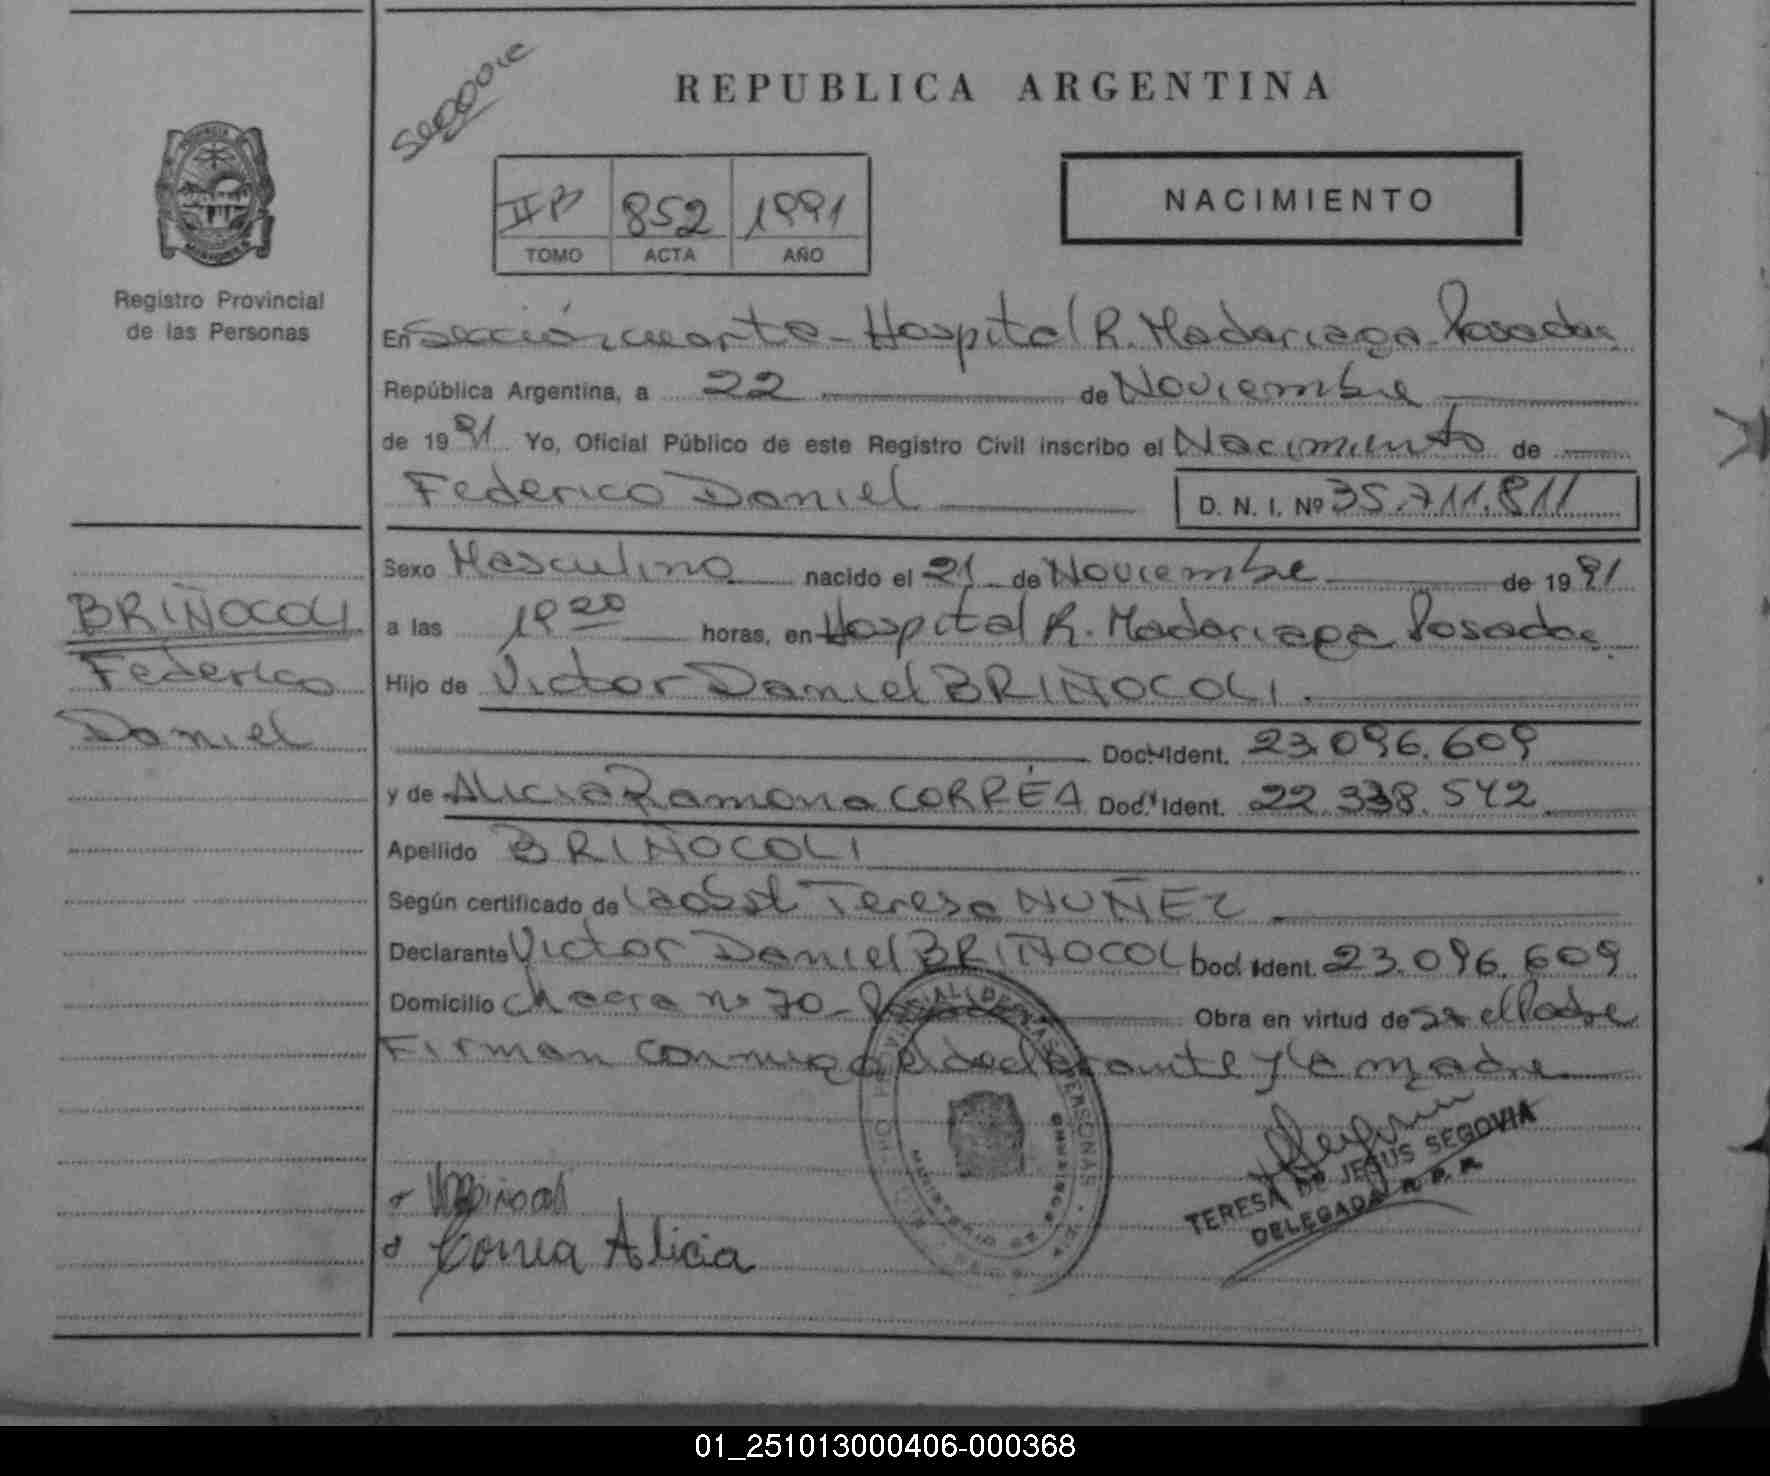 REPUBLICA ARGENTINA
II B 852 1991
TOMO ACTA AÑO
NACIMIENTO
Registro Provincial
de las Personas
En Sección cuarta - Hospital R. Madariaga - Posadas
República Argentina, a 22 de Noviembre
de 1991 Yo, Oficial Público de este Registro Civil inscribo el Nacimiento de
Federico Daniel
D. N. I. Nº 35.711.811
Sexo Masculino nacido el 21 de Noviembre de 1991
a las 19 20 horas, en Hospital R. Madariaga Posadas
Hijo de Victor Daniel BRIÑOCOLI.
Doc. Ident. 23.096.609
y de Alicia Ramona CORRÉA Doc. Ident. 22.338.542
Apellido BRIÑOCOLI
Según certificado de la obst Teresa NUÑEZ
Declarante Victor Daniel BRIÑOCOLI Doc. Ident. 23.096.609
Domicilio chacra nº 70 - Posadas Obra en virtud de ser el Padre
Firman conmigo el declarante y la madre
BRIÑOCOLI
Federico
Daniel
Correa Alicia
TERESA DE JESUS SEGOVIA
DELEGADA R. P. P.
01_251013000406-000368